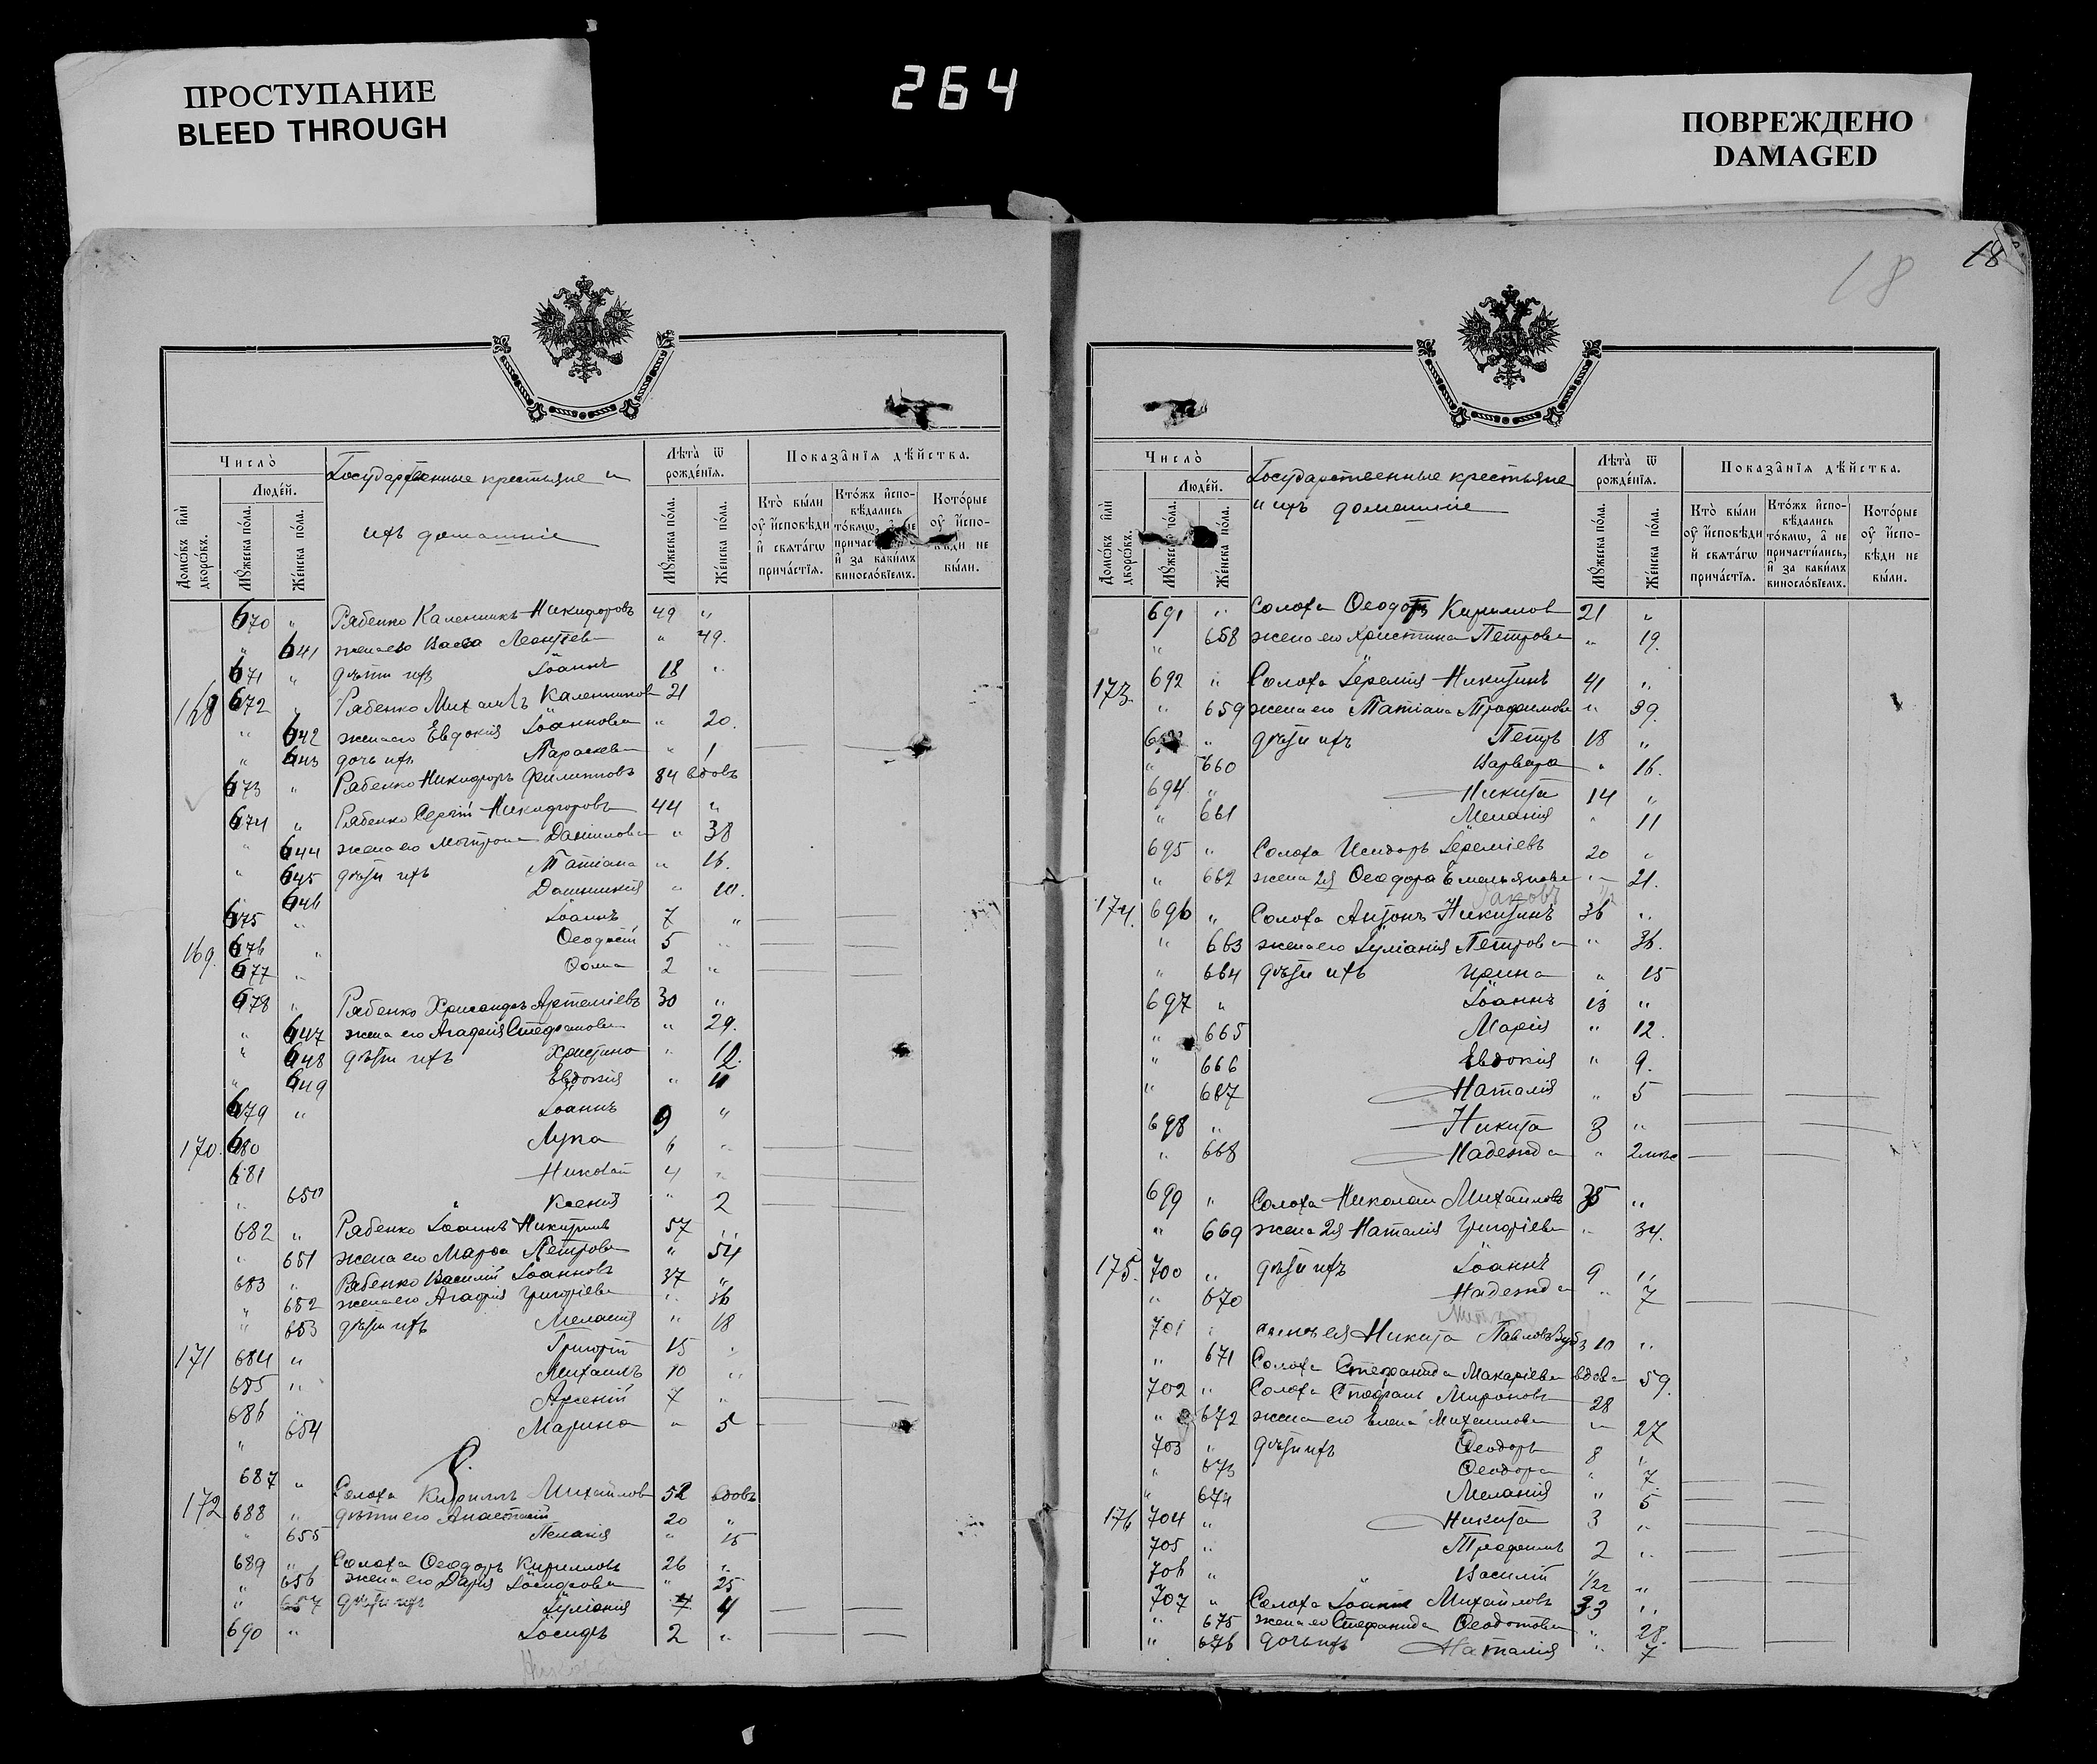 ПРОСТУПАНИЕ
BLEED THROUGH
264
ПОВРЕЖДЕНО
DAMAGED
Число̀
Домѡ́въ и҆лѝ дворѡ́въ.
Люде́й.
Мꙋ́жеска по́ла.
Же́нска по́ла.
Государственные крестьяне и
ихъ домашніе
Лѣта̀ ѿ рожде́нїѧ.
Мꙋ́жеска по́ла.
Же́нска по́ла.
Показа̑нїѧ дѣ́йства.
Кто̀ бы́ли оу҆ и҆сповѣди и҆ свѧта́гѡ прича́стїѧ.
Кто́жъ и҆сповѣдались то́кмѡ, а҆ не причас и҆ за каки́мъ винослі́вїемъ.
Кото́рые оу҆ и҆сповѣди не бы́ли.
670 " Рябенко Каленикъ Никифоровъ 49 "
" 641 жена его Васса Леонтьева " 49.
671 " дѣти ихъ Іоаннъ 18 "
168 672 " Рябенко Михаилъ Калениковъ 21
" 642 жена его Евдокія Іоаннова " 20.
" 643 дочь ихъ Параскева " 1
673 " Рябенко Никифоръ Филипповъ 84 вдовъ
674 " Рябенко Сергій Никифоровъ 44 "
" 644 жена его Мотрона Даніилова " 38
" 645 дѣти ихъ Татіана " 16.
646 Домникія " 10.
675 " Іоаннъ 7 "
169. 676 " Ѳеодосій 5 "
677 " Ѳома 2 "
678 " Рябенко Хрисанфъ Артеміевъ 30 "
" 647 жена его Агафія Стефанова " 29.
" 648 дѣти ихъ Христина " 12.
" 649 Евдокія " 11
679 " Іоаннъ 9 "
170. 680 Лука 6 "
681 Николай 4 "
" 650 Ксенія " 2
682 " Рябенко Іоаннъ Никитинъ 57 "
" 651 жена его Марѳа Петрова " 54
683 " Рябенко Василій Іоанновъ 37 "
" 652 жена его Агафія Григоріева " 36
" 653 дѣти ихъ Меланія " 18
171 684 " Григорій 15 "
685 " Михаилъ 10 "
686 " Арсеній 7 "
" 654 Марина " 5
С.
687 " Солоха Кириллъ Михайловъ 52 вдовъ
172 688 " дѣти его Анастасій 20 "
" 655 Пелагія " 15
689 " Солоха Ѳеодоръ Кирилловъ 26 "
" 656 жена его Дарія Іосифова " 25
" 657 дѣти ихъ Іуліанія 4
690 " Іосифъ 2 "
18
18
Число̀
Домѡ́въ и҆лѝ дворѡ́въ.
Люде́й.
Мꙋ́жеска по́ла.
Же́нска по́ла.
Государственные крестьяне
и ихъ домашніе
Лѣта̀ ѿ рожде́нїѧ.
Мꙋ́жеска по́ла.
Же́нска по́ла.
Показа̑нїѧ дѣ́йства.
Кто̀ бы́ли оу҆ и҆сповѣди и҆ свѧта́гѡ прича́стїѧ.
Кто́жъ и҆сповѣдались то́кмѡ, а҆ не причасти́лись, и҆ за каки́мъ винослі́вїемъ.
Кото́рые оу҆ и҆сповѣди не бы́ли.
691 " Солоха Ѳеодотъ Кириллов 21 "
" 658 жена его Христина Петрова " 19.
173 692 " Солоха Іеремія Никитинъ 41 "
" 659 жена его Татіана Трофимова " 39.
" дѣти ихъ Петръ 18 "
" 660 Варвара " 16.
694 " Никита 14 "
" 661 Меланія " 11
695 " Солоха Исидоръ Іереміевъ 20 "
" 662 жена его Ѳеодора Емельянова " 21.
Яковъ 1/2
174. 696 " Солоха Антонъ Никитинъ 36 "
" 663 жена его Іуліанія Петрова " 36.
" 664 дѣти ихъ Ирина " 15
697 " Іоаннъ 13 "
" 665 Марія " 12.
" 666 Евдокія " 9.
" 667 Наталія " 5
698 " Никита 3 "
" 668 Надежда " 2
699 " Солоха Николай Михайловъ 35 "
" 669 жена его Наталія Григоріева " 34.
175. 700 " дѣти ихъ Іоаннъ 9 "
" 670 Надежда " 7
701 " Никита Павловъ 10 "
" 671 Солоха Стефанида Макаріева вдова 59.
702 " Солоха Стефанъ Мироновъ 28
" 672 жена его Елена Михаилова " 27
703 " дѣти ихъ Ѳеодоръ 8 "
" 673 Ѳеодора " 7
" 674 Меланія " 5
176 704 " Никита 3 "
705 " Трофимъ 2 "
706 " Василій 1/2 "
707 " Солоха Іоаннъ Михайловъ 33 "
" 675 жена его Стефанида Ѳеодотова " 28.
" 676 дочь ихъ Наталія " 7